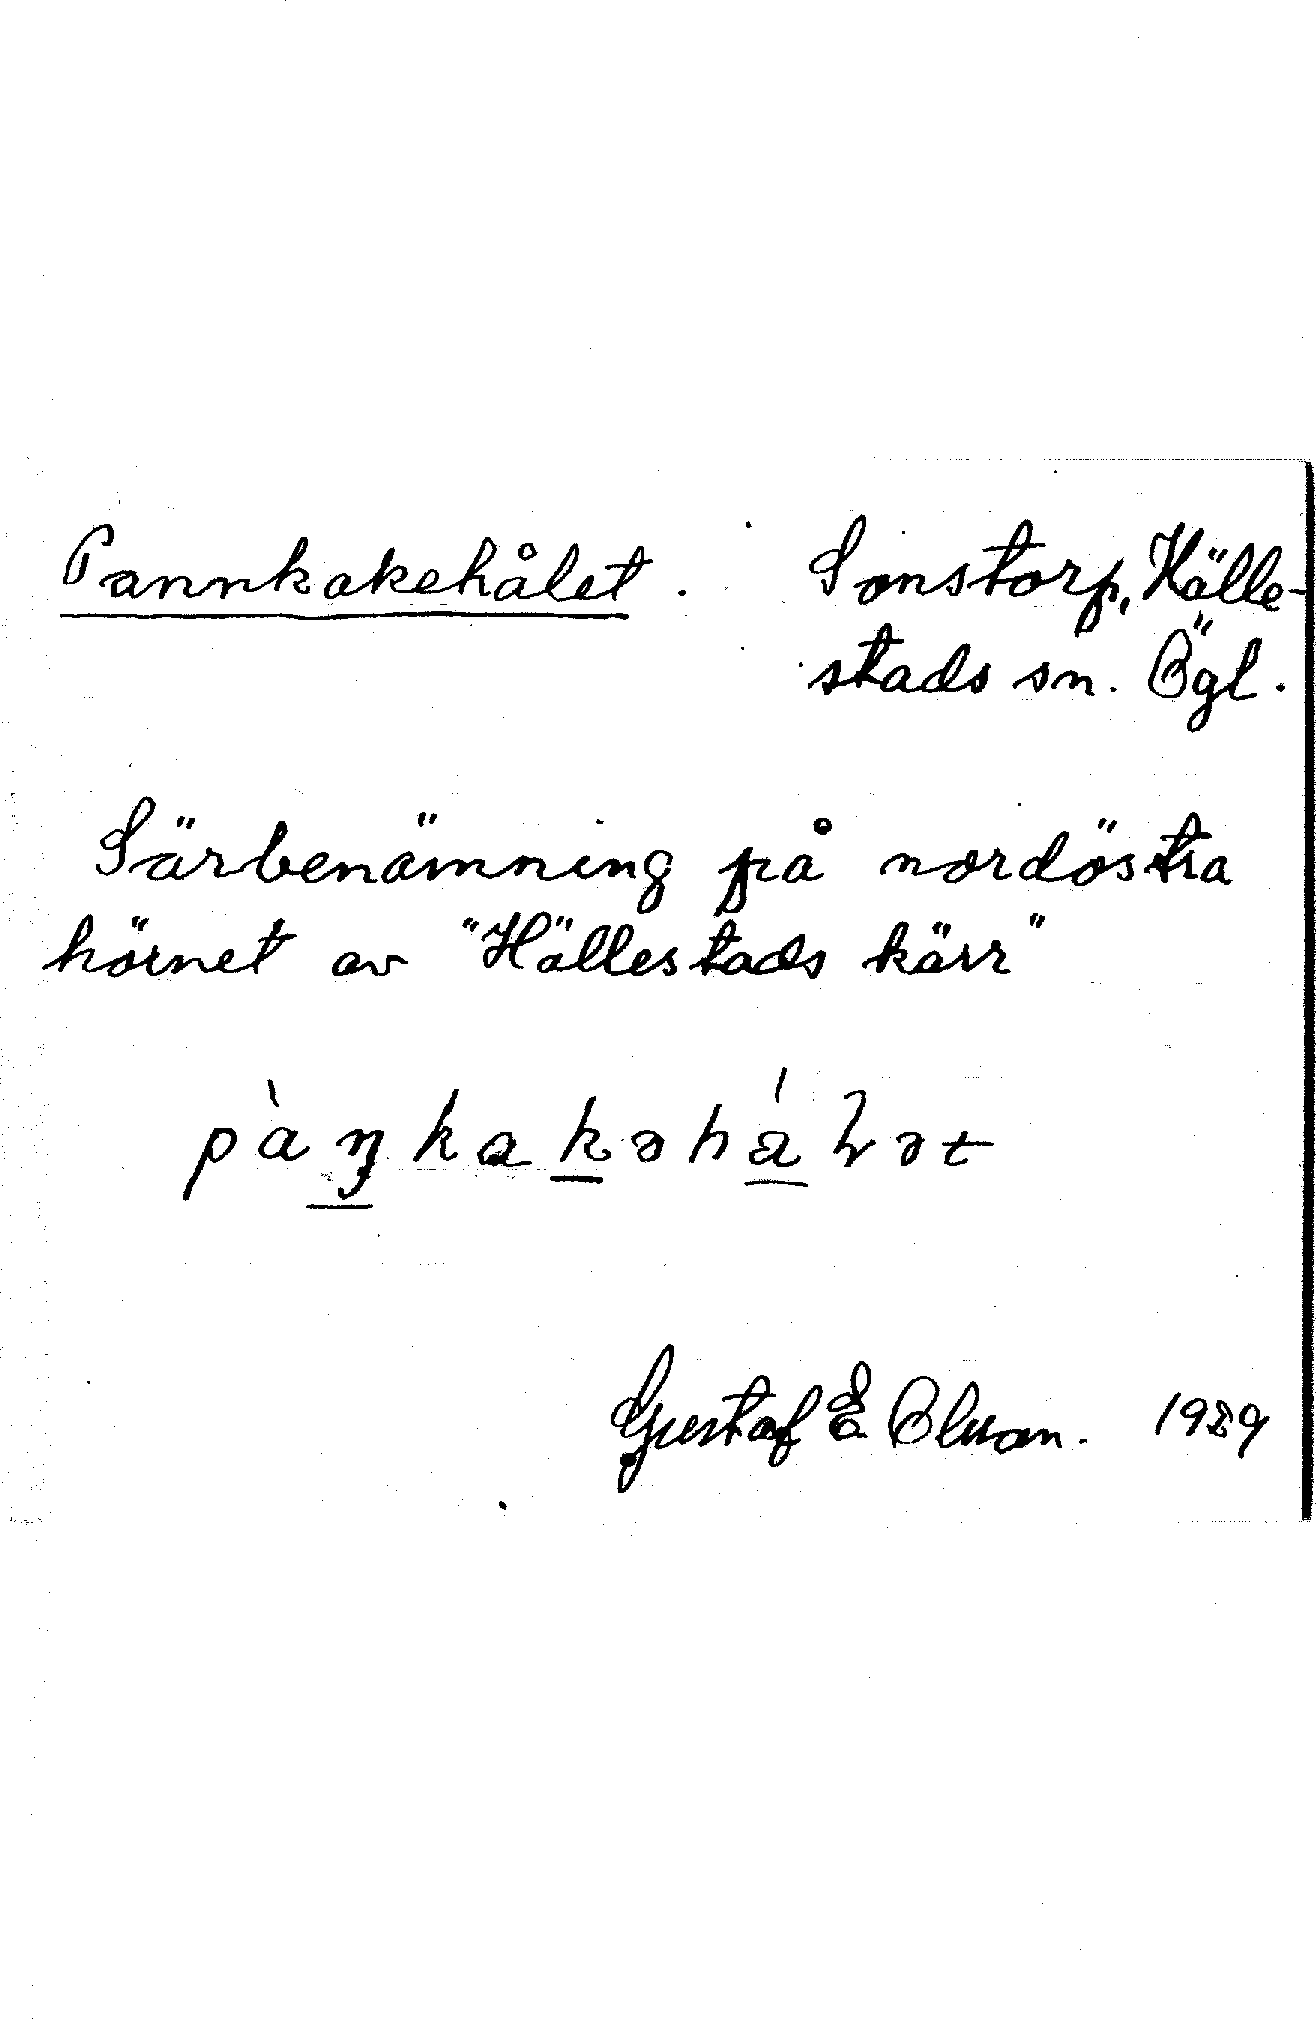 Pannkakehålet. Sonstorp, Hälle-
stads sn. Ögl.
Särbenämning på nordöstra
hörnet av "Hällestads kärr"
Gustaf E Olsson. 1989